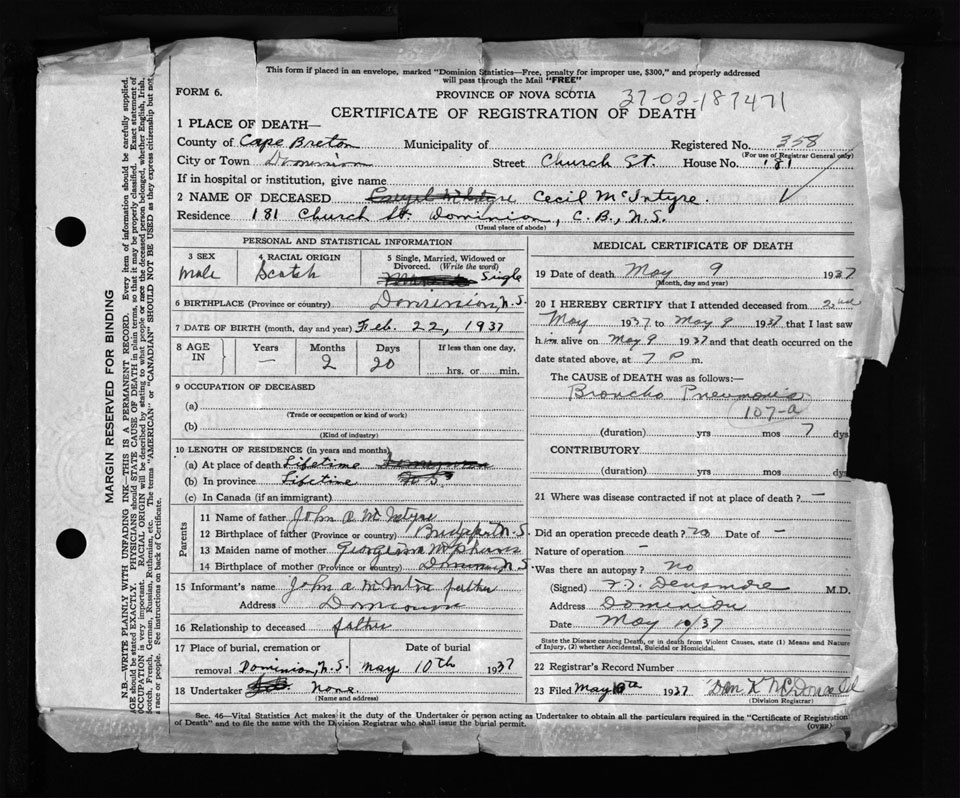 This form if placed in an envelope, marked "Dominion Statistics—Free, penalty for improper use, $300," and properly addressed
will pass through the Mail "FREE"
FORM 6.
PROVINCE OF NOVA SCOTIA
37-02-187471
CERTIFICATE OF REGISTRATION OF DEATH
1 PLACE OF DEATH—
County of Cape Breton Municipality of Registered No. 358
(For use of Registrar General only)
City or Town Dominion Street Church St. House No. 181
If in hospital or institution, give name
2 NAME OF DECEASED Cecil McIntyre.
Residence 181 Church St. Dominion, C.B., N.S.
(Usual place of abode)
PERSONAL AND STATISTICAL INFORMATION
3 SEX
Male
4 RACIAL ORIGIN
Scotch
5 Single, Married, Widowed or
Divorced. (Write the word)
Single
6 BIRTHPLACE (Province or country) Dominion, N.S.
7 DATE OF BIRTH (month, day and year) Feb. 22, 1937
8 AGE
IN
Years
—
Months
2
Days
20
If less than one day,
hrs. or min.
9 OCCUPATION OF DECEASED
(a)
(Trade or occupation or kind of work)
(b)
(Kind of industry)
10 LENGTH OF RESIDENCE (in years and months)
(a) At place of death Lifetime
(b) In province Lifetime
(c) In Canada (if an immigrant)
Parents
11 Name of father John A McIntyre
12 Birthplace of father (Province or country) N.S.
13 Maiden name of mother Georgina
14 Birthplace of mother (Province or country) Dominion, N.S.
15 Informant's name John A McIntyre father
Address Dominion
16 Relationship to deceased father
17 Place of burial, cremation or Date of burial
removal Dominion, N.S. May 10th 1937
18 Undertaker None
(Name and address)
MEDICAL CERTIFICATE OF DEATH
19 Date of death May 9 1937
(Month, day and year)
20 I HEREBY CERTIFY that I attended deceased from 2nd
May 1937 to May 9 1937 that I last saw
him alive on May 9 1937 and that death occurred on the
date stated above, at 7 P m.
The CAUSE of DEATH was as follows:—
Broncho Pneumonia
107-a
(duration) yrs mos 7 dys
CONTRIBUTORY
(duration) yrs mos
21 Where was disease contracted if not at place of death? —
Did an operation precede death? no Date of —
Nature of operation —
Was there an autopsy? no
(Signed) F. D. Densmore M.D.
Address Dominion
Date May 10/37
State the Disease causing Death, or in death from Violent Causes, state (1) Means and Nature
of Injury, (2) whether Accidental, Suicidal or Homicidal.
22 Registrar's Record Number
23 Filed May 10th 1937 Dan K McDonald
(Division Registrar)
Sec. 46—Vital Statistics Act makes it the duty of the Undertaker or person acting as Undertaker to obtain all the particulars required in the "Certificate of Registration
of Death" and to file the same with the Division Registrar who shall issue the burial permit.
(OVER)
MARGIN RESERVED FOR BINDING
N.B.—WRITE PLAINLY WITH UNFADING INK—THIS IS A PERMANENT RECORD. Every item of information should be carefully supplied.
AGE should be stated EXACTLY. PHYSICIANS should STATE CAUSE OF DEATH in plain terms, so that it may be properly classified. Exact statement of
OCCUPATION is very important. RACIAL ORIGIN will be described by stating to what people or race the deceased person belonged, whether English, Irish,
Scotch, French, German, Russian, Ruthenian, etc. The terms "AMERICAN" or "CANADIAN" SHOULD NOT BE USED as they express citizenship but not
a race or people. See instructions on back of Certificate.